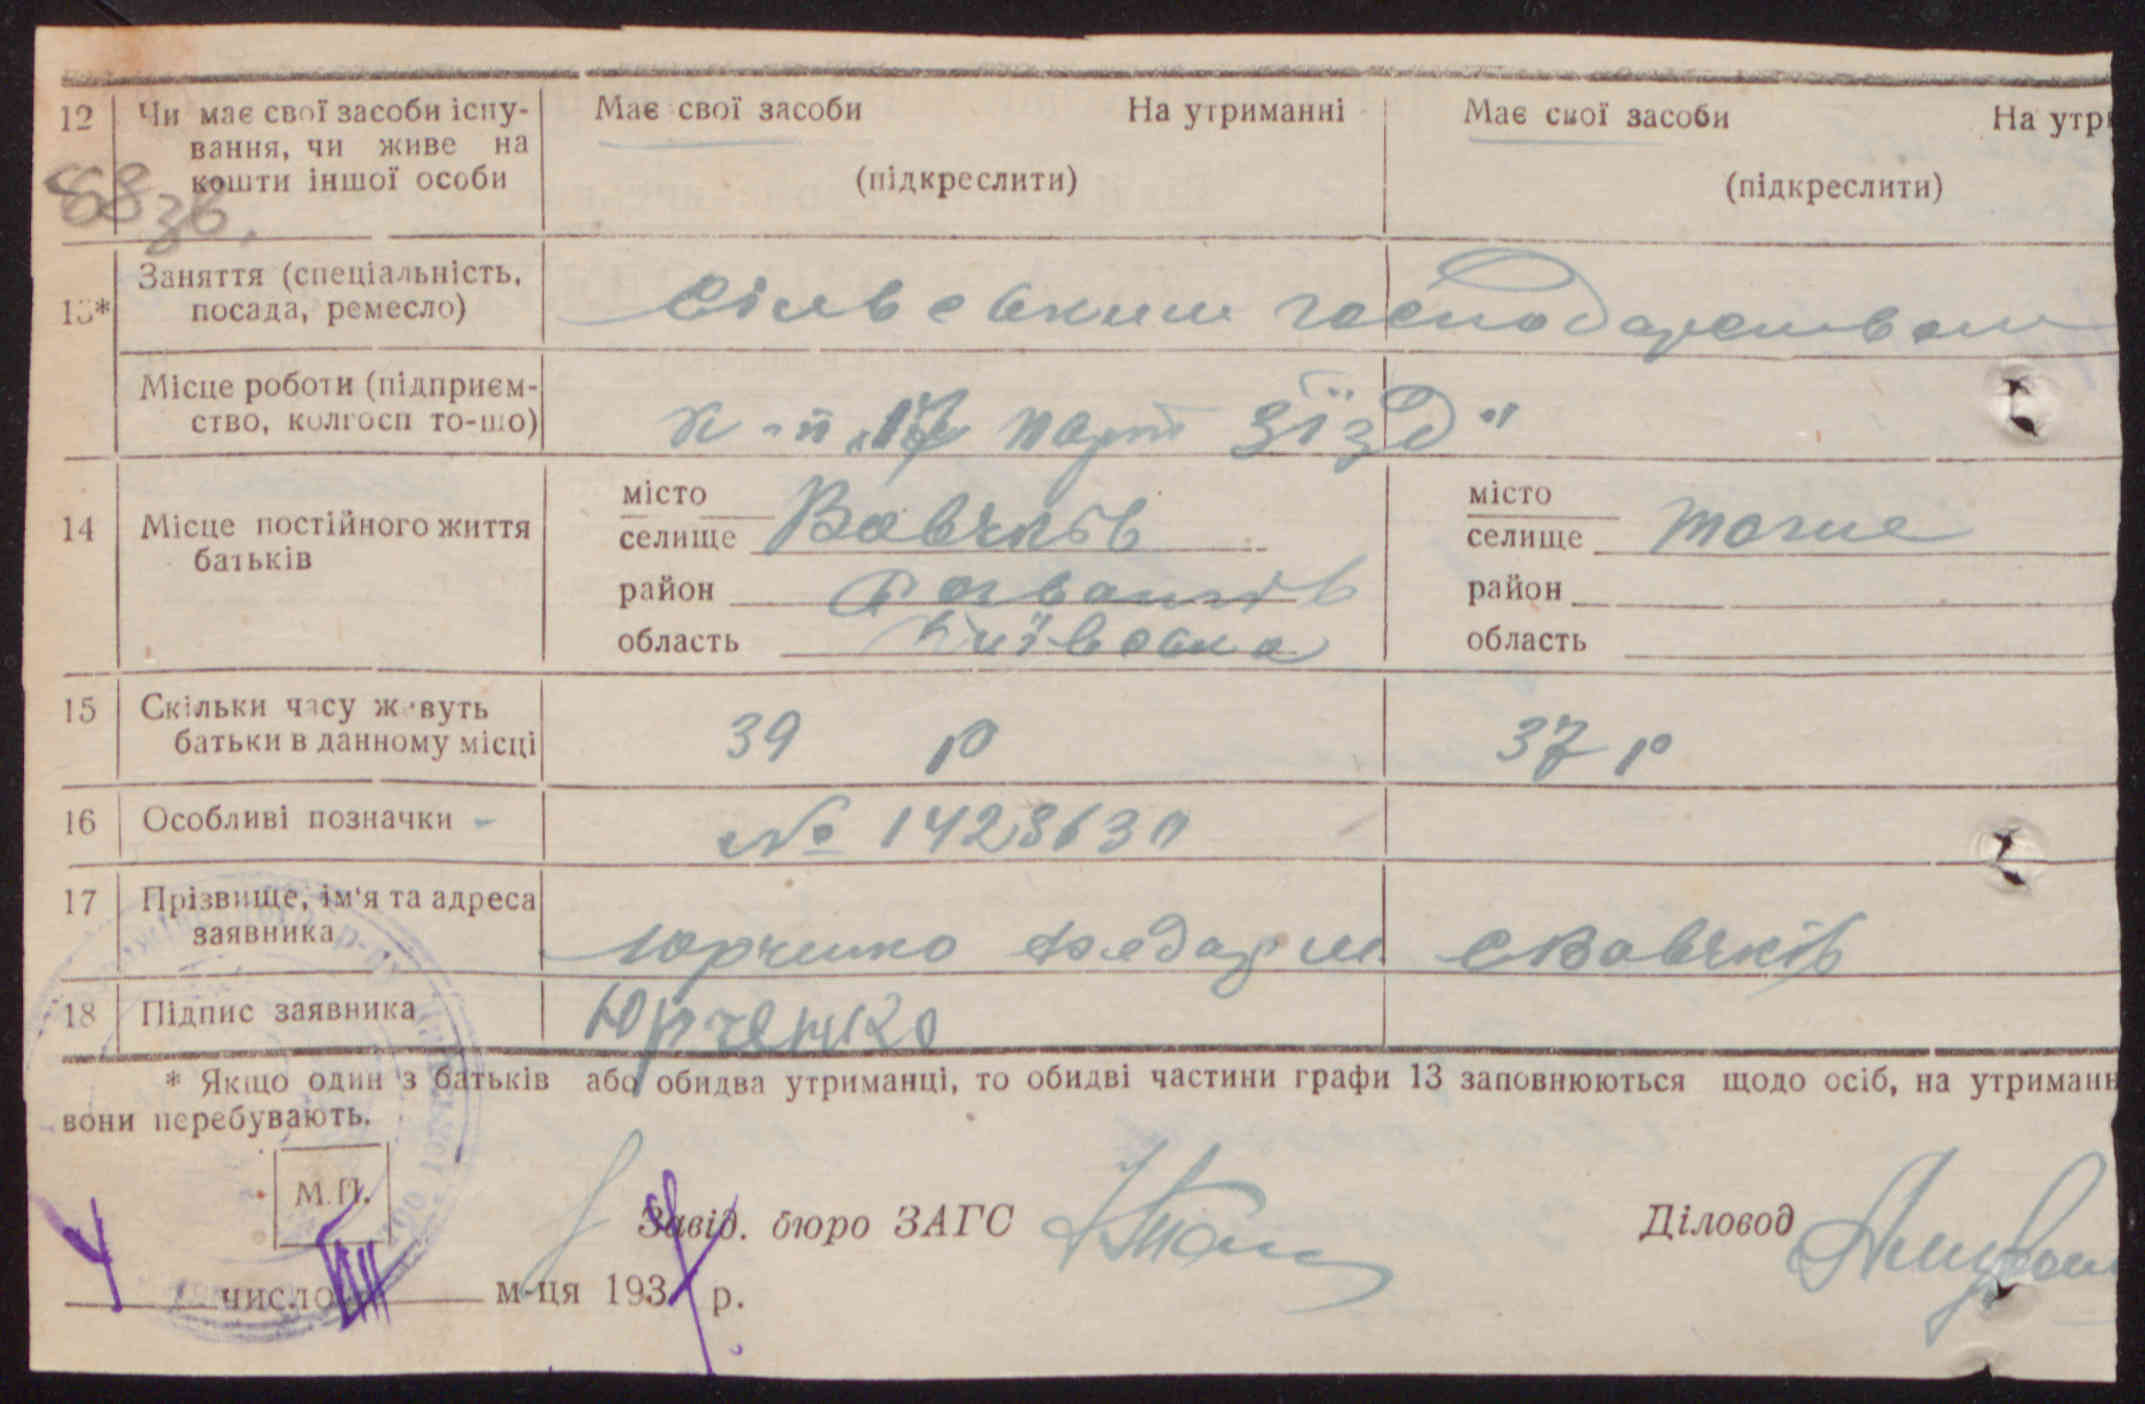 12 Чи має свої засоби існу- Має свої засоби На утриманні Має свої засоби На утри
вання, чи живе на
кошти іншої особи (підкреслити) (підкреслити)
68 зв.
Заняття (спеціальність,
13* посада, ремесло) Сільським господарством
Місце роботи (підприєм-
ство, колгосп то-що) к-п „17 парт зїзд"
місто місто
14 Місце постійного життя селище Вовчків селище тоже
батьків
район район
область Київська область
15 Скільки часу живуть
батьки в данному місці 39 р 37 р
16 Особливі позначки - № 1428630
17 Прізвище, ім'я та адреса
заявника Юрченко Федір с Вовчків
18 Підпис заявника Юрченко
* Якщо один з батьків або обидва утриманці, то обидві частини графи 13 заповнюються щодо осіб, на утриманн
вони перебувають.
М.П.
Завід. бюро ЗАГС Діловод
4 число м-ця 193 р.